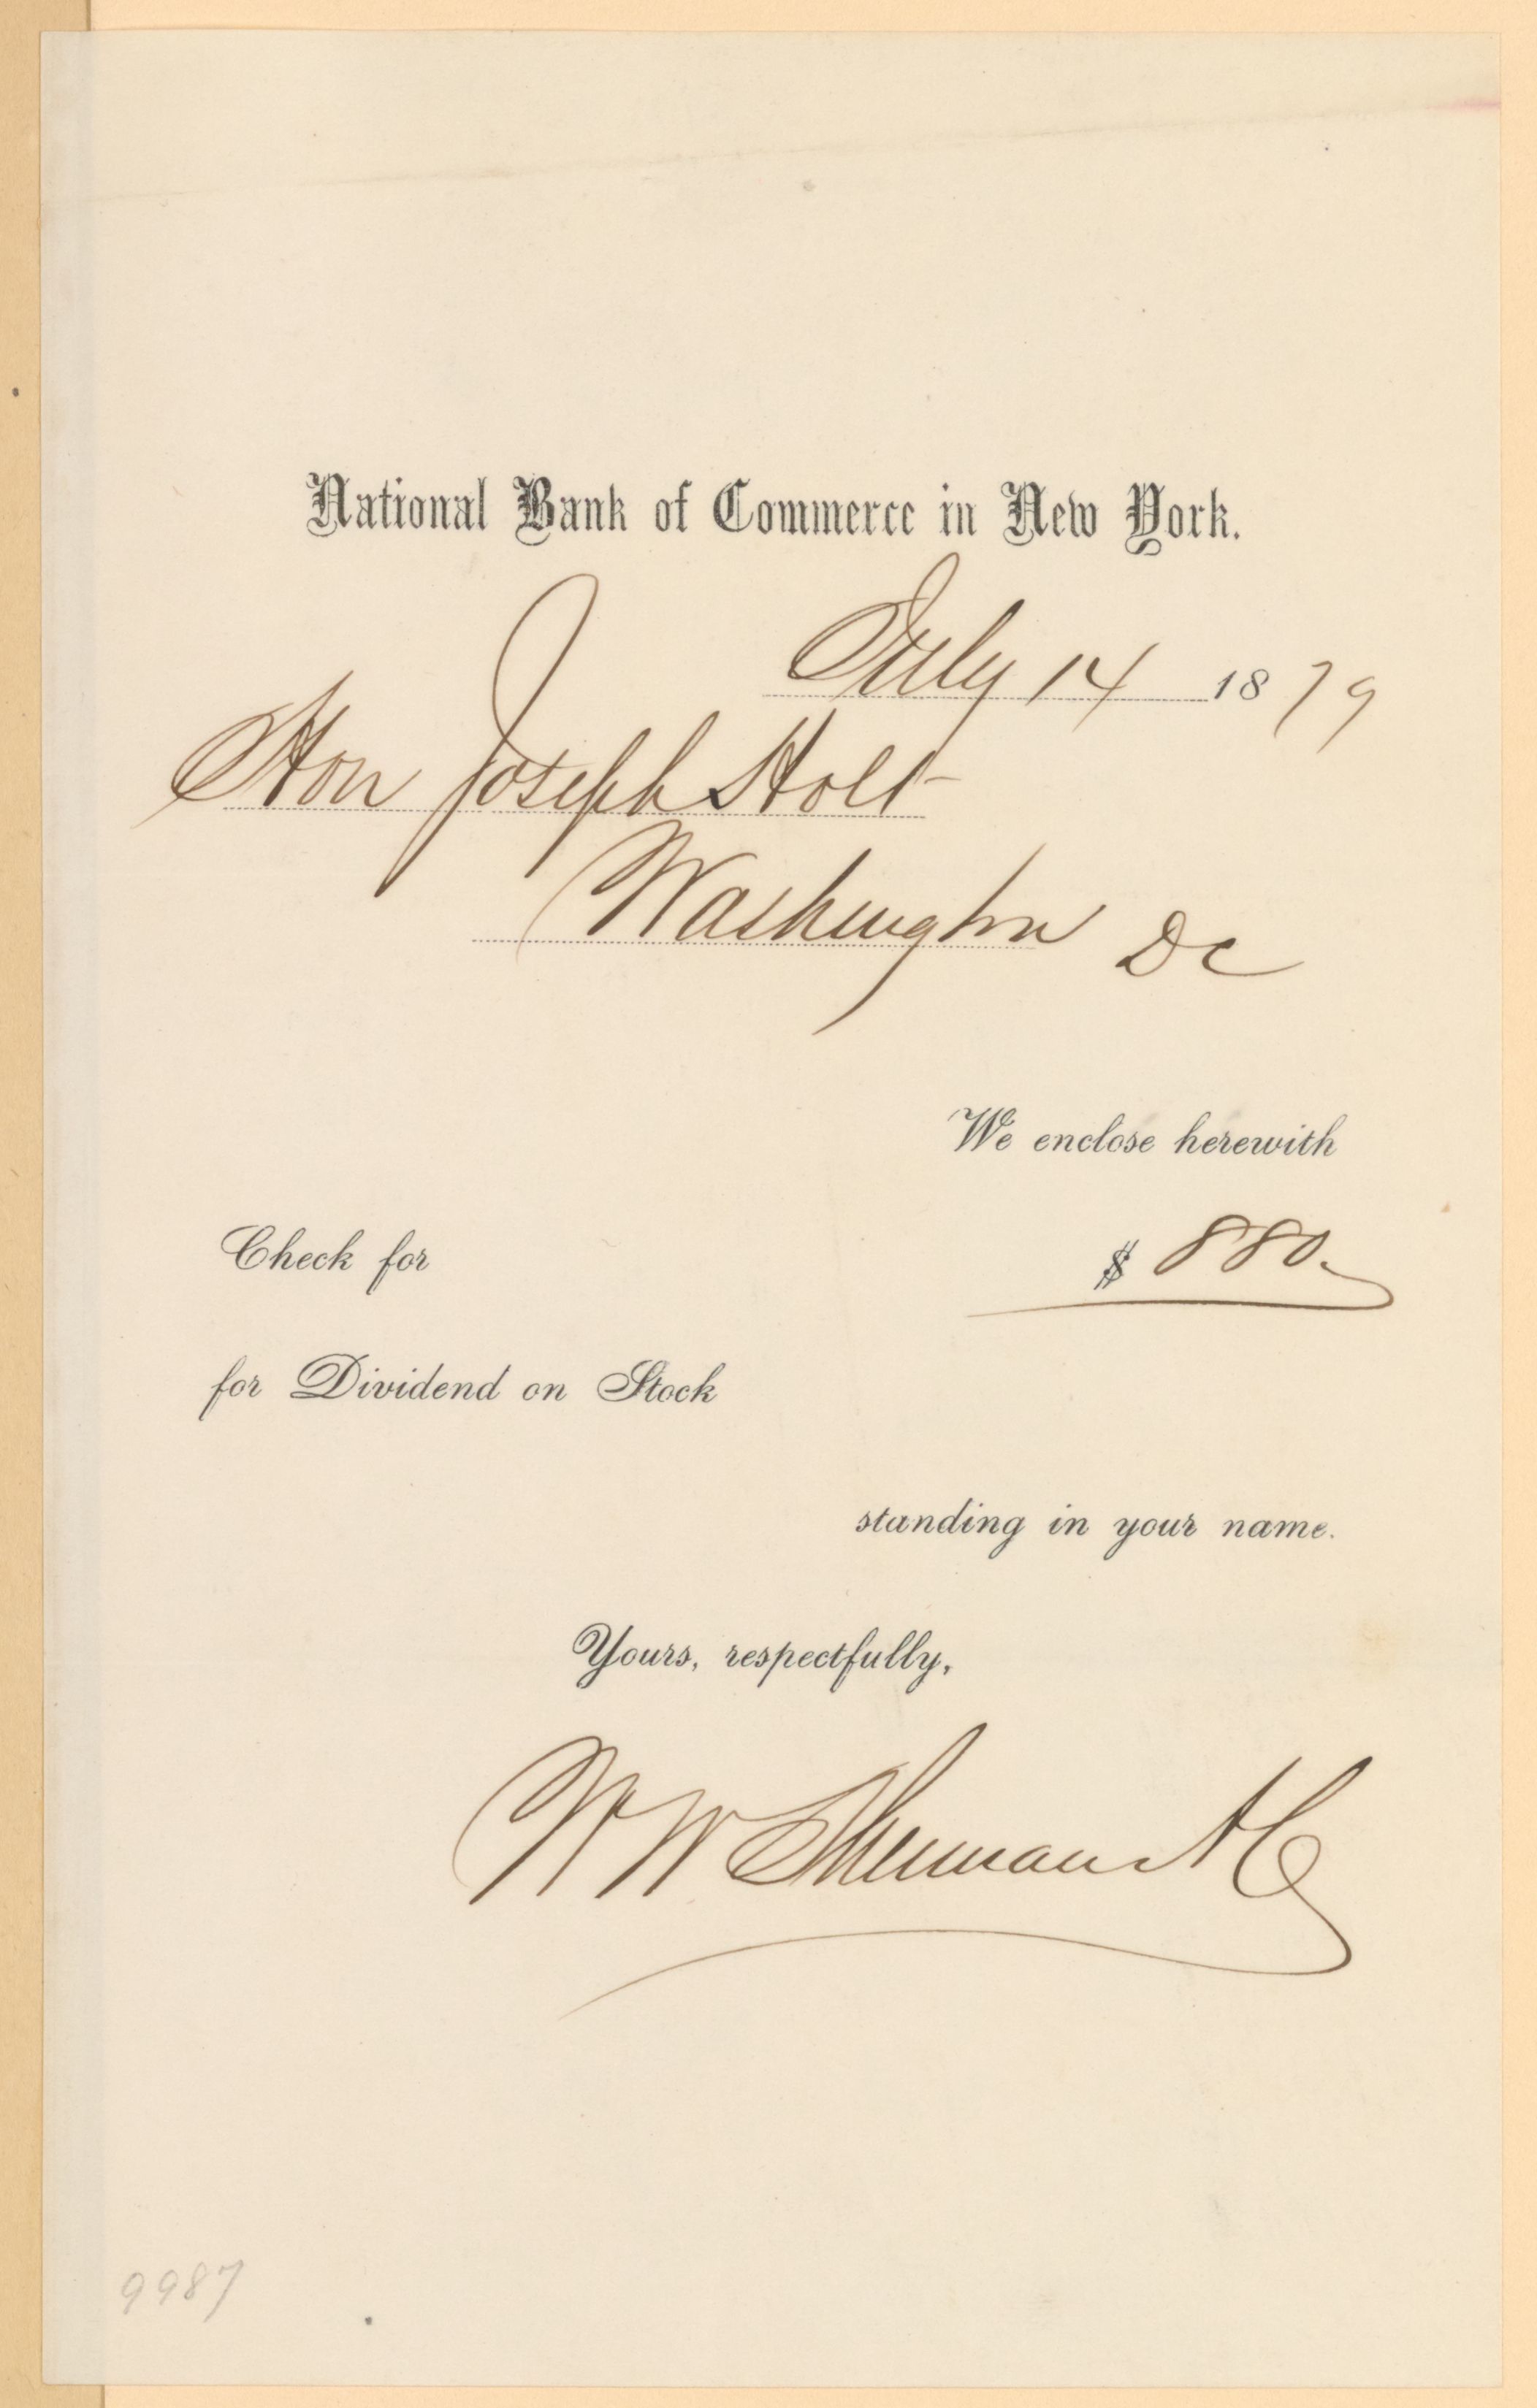 National Bank of Commerce in New York.
July 14 1879
Hon Joseph Holt
Washington DC
We enclose herewith
Check for $ 880.
for Dividend on Stock
standing in your name.
Yours, respectfully,
W W Sherman
9987